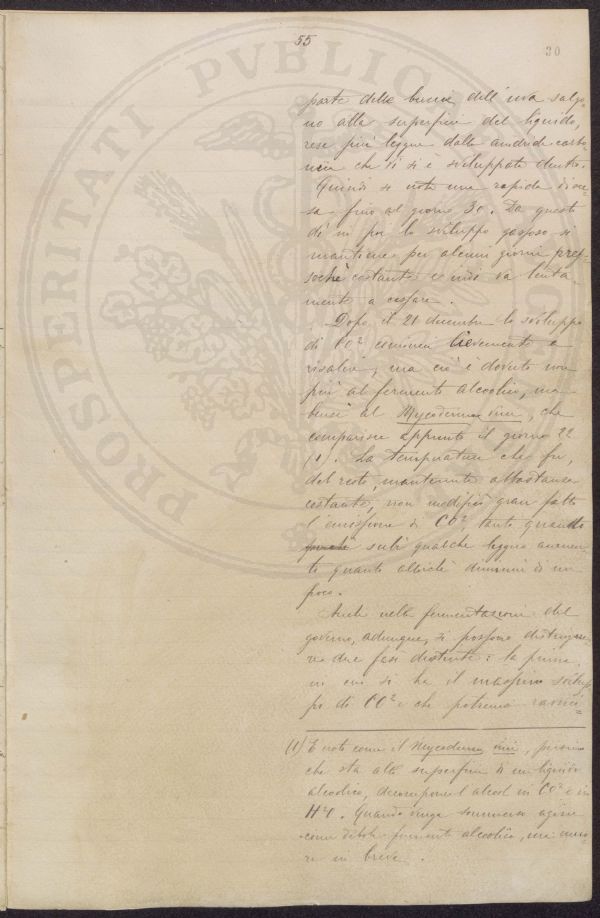 55
30
PROSPERITATI PVBLICAE
parte delle bucce dell'uva salgo=
no alla superficie del liquido,
rese più leggere dalla anidride carbo
nica che si è sviluppata dentro.
Quindi si nota una rapida disce=
sa fino al giorno 30. Da questo
dì in poi lo sviluppo gassoso si
mantiene per alcuni giorni pres=
sochè costante e indi va lenta
mente a cessare.
Dopo il 21 decembre lo sviluppo
di CO² comincia lievemente a
risalire, ma ciò è dovuto non
più al fermento alcoolico, ma
bensì al Mycoderma vini, che
comparisce appunto il giorno 22
(1). La temperatura che fu,
del resto, mantenuta abbastanza
costante, non modificò gran fatto
l'emissione di CO², tanto quando
subì qualche leggero aumen=
to quanto allorchè diminuì di un
poco.
Anche nella fermentazione del
governo, adunque, si possono distingue=
re due fasi distinte: la prima
in cui si ha il massimo svilup
po di CO² e che potremo
(1) È noto come il Mycoderma vini,
che sta alla superficie di un liquido
alcoolico, decompone l'alcool in CO² e in
H²O. Quando venga sommerso agisce
come debole fermento alcoolico, ma muo=
re in breve.